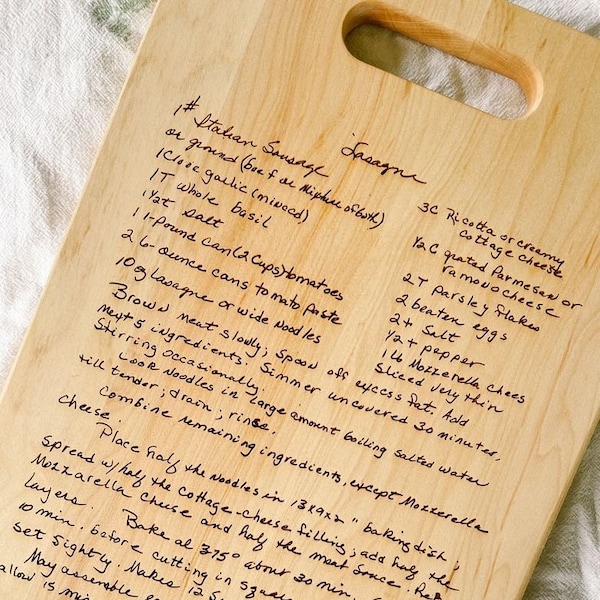 Lasagne
1# Italian Sausage
or ground (beef or Mixture of both)
1 Clove garlic (minced)
1 T Whole basil
1/2 t Salt
1 1-pound can (2 Cups) tomatoes
2 6-ounce cans tomato Paste
10 oz Lasagne or wide Noodles
3C Ricotta or creamy
Cottage cheese
1/2 C grated Parmesan or
ramono cheese
2 T Parsley flakes
2 beaten eggs
2 t Salt
1/2 t pepper
1 lb Mozzerella Chees
Sliced very thin
Brown meat slowly; Spoon off excess fat. Add
next 5 ingredients. Simmer uncovered 30 minutes,
Stirring Occasionally.
Cook Noodles in large amount boiling salted water
till tender; drain; rinse.
Combine remaining ingredients, except Mozzerella
cheese.
Place half the Noodles in 13x9x2" baking dish;
Spread w/half the cottage-cheese filling; add half the
Mozzarella cheese and half the meat Sauce. Re
layers. Bake at 375° about 30 min.
10 min. before cutting in squa
set Slightly. Makes 12 S
May assemble ea
allow 15 min